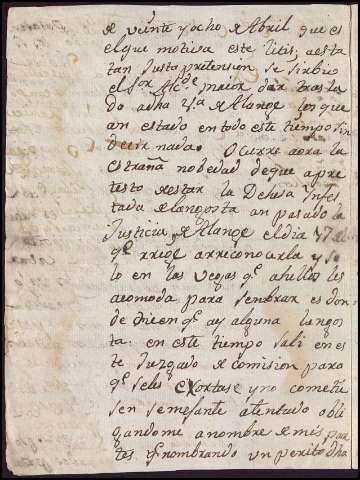 de veinte y ocho de Abril que es
el que motiva este litis; aesta
tan Justa pretension se sirbio
el Sor. Alc.de maior dar trasla
do adha V.a de Alange los que
an estado entodo este tiempo sin
decir nada. Ocurre aora la
estraña nobedad deque apre
testo de estar la Dehesa Ynfes
tada de langosta an pasado la
Justicia de Alange el dia
q.e rrige arreconocerla y so
lo en las vegas q.e a hellos les
acomoda para senbrar es don
de dicen q.e ay alguna langos
ta. en este tiempo sali en es
te Juzgado de comision para
q.e seles exortase y no cometie
sen semejante atentado obli
gandome anombre de mis par
tes q.e nombrando un perito dha